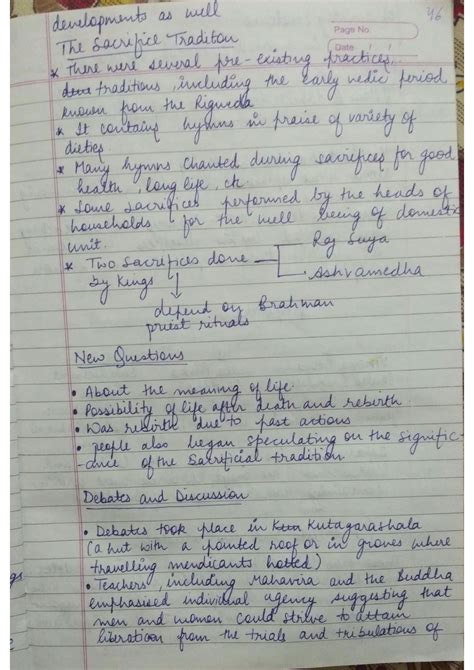 developments as well
46
Page No.
Date / /
The Sacrifice Traditon
* There were several pre-existing practices,
traditions, including the early vedic period
known from the Rigveda
* It contains hymns in praise of variety of
dieties
* Many hymns chanted during sacrifices for good
health, long life, etc.
* Some sacrifices performed by the heads of
households for the well being of domestic
unit.
* Two Sacrefices done — Raj Suya
by kings Ashvamedha
depend on Brahman
priest rituals
New Questions
• About the meaning of life.
• Possibility of life after death and rebirth.
• Was rebirth due to past actions
• people also began speculating on the signific-
-ance of the Sacrificial tradition
Debates and Discussion
• Debates took place in Kutagarashala
(a hut with a pointed roof or in groves where
travelling mendicants halted)
• Teachers, including Mahavira and the Buddha
emphasised individual agency suggesting that
men and women could strive to attain
liberation from the trials and tribulations of